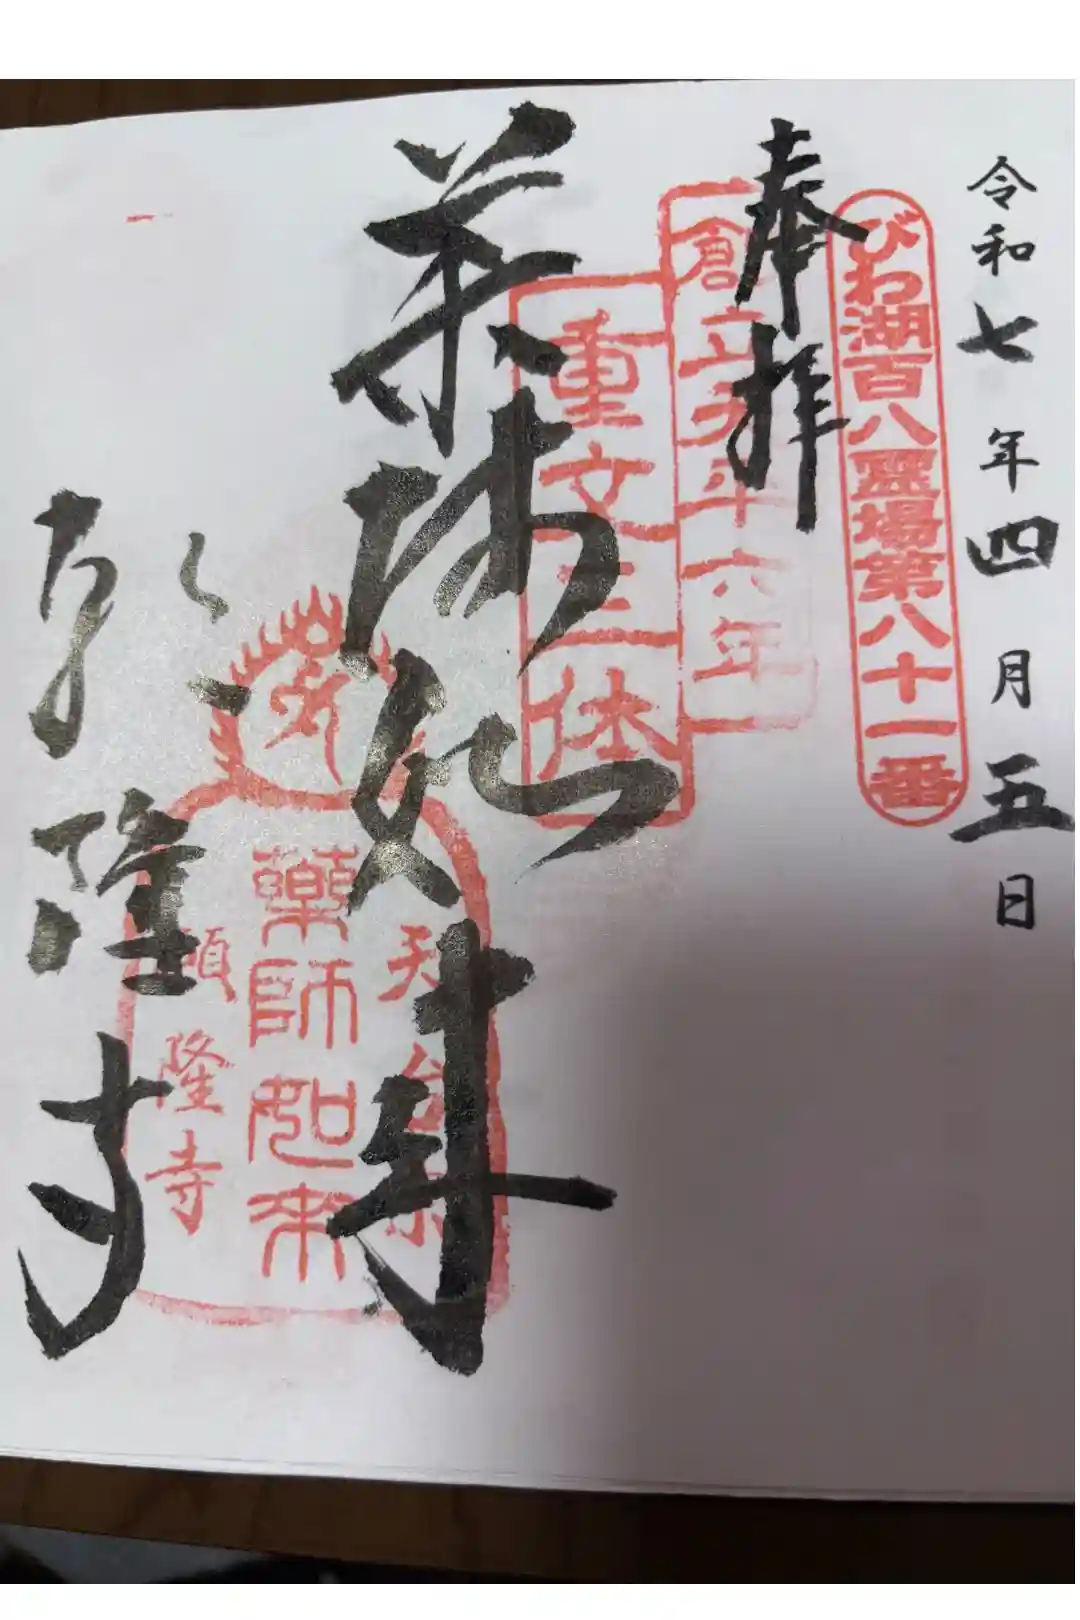 令和七年四月五日
びわ湖百八霊場第八十一番
奉拝
創立天平六年
重文三体
薬師如来
天台宗
薬師如来
願隆寺
願隆寺